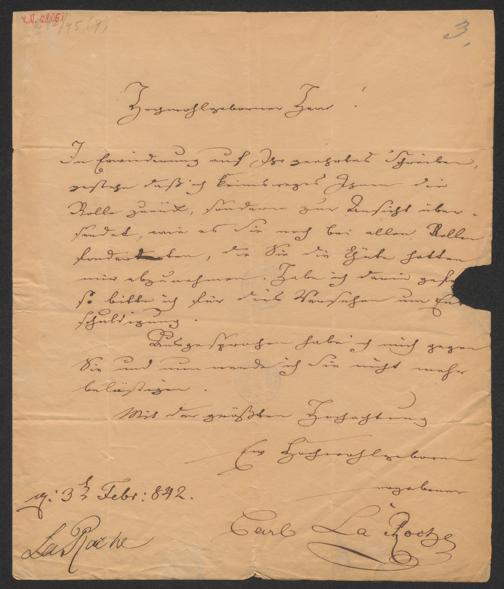 3.
Hochwohlgeborner Herr!
In Erwiederung auf Ihr geehrtes Schreiben,
gestehe daß ich keineswegs Ihnen die
Rolle zurük, sondern zur Ansicht über-
sendet, wie es Sie noch bei allen Rollen
die Sie die Güte hatten
mir abzunehmen. Habe ich darin gef
so bitte ich für dies Versehen um Ent
schuldigung.
Ausgesprochen habe ich mich gegen
Sie und nun werde ich Sie nicht mehr
belästigen.
Mit der größten Hochachtung
Ew Hochwohlgeboren
ergebener
Carl La Roche
3t Febr: 842.
La Roche